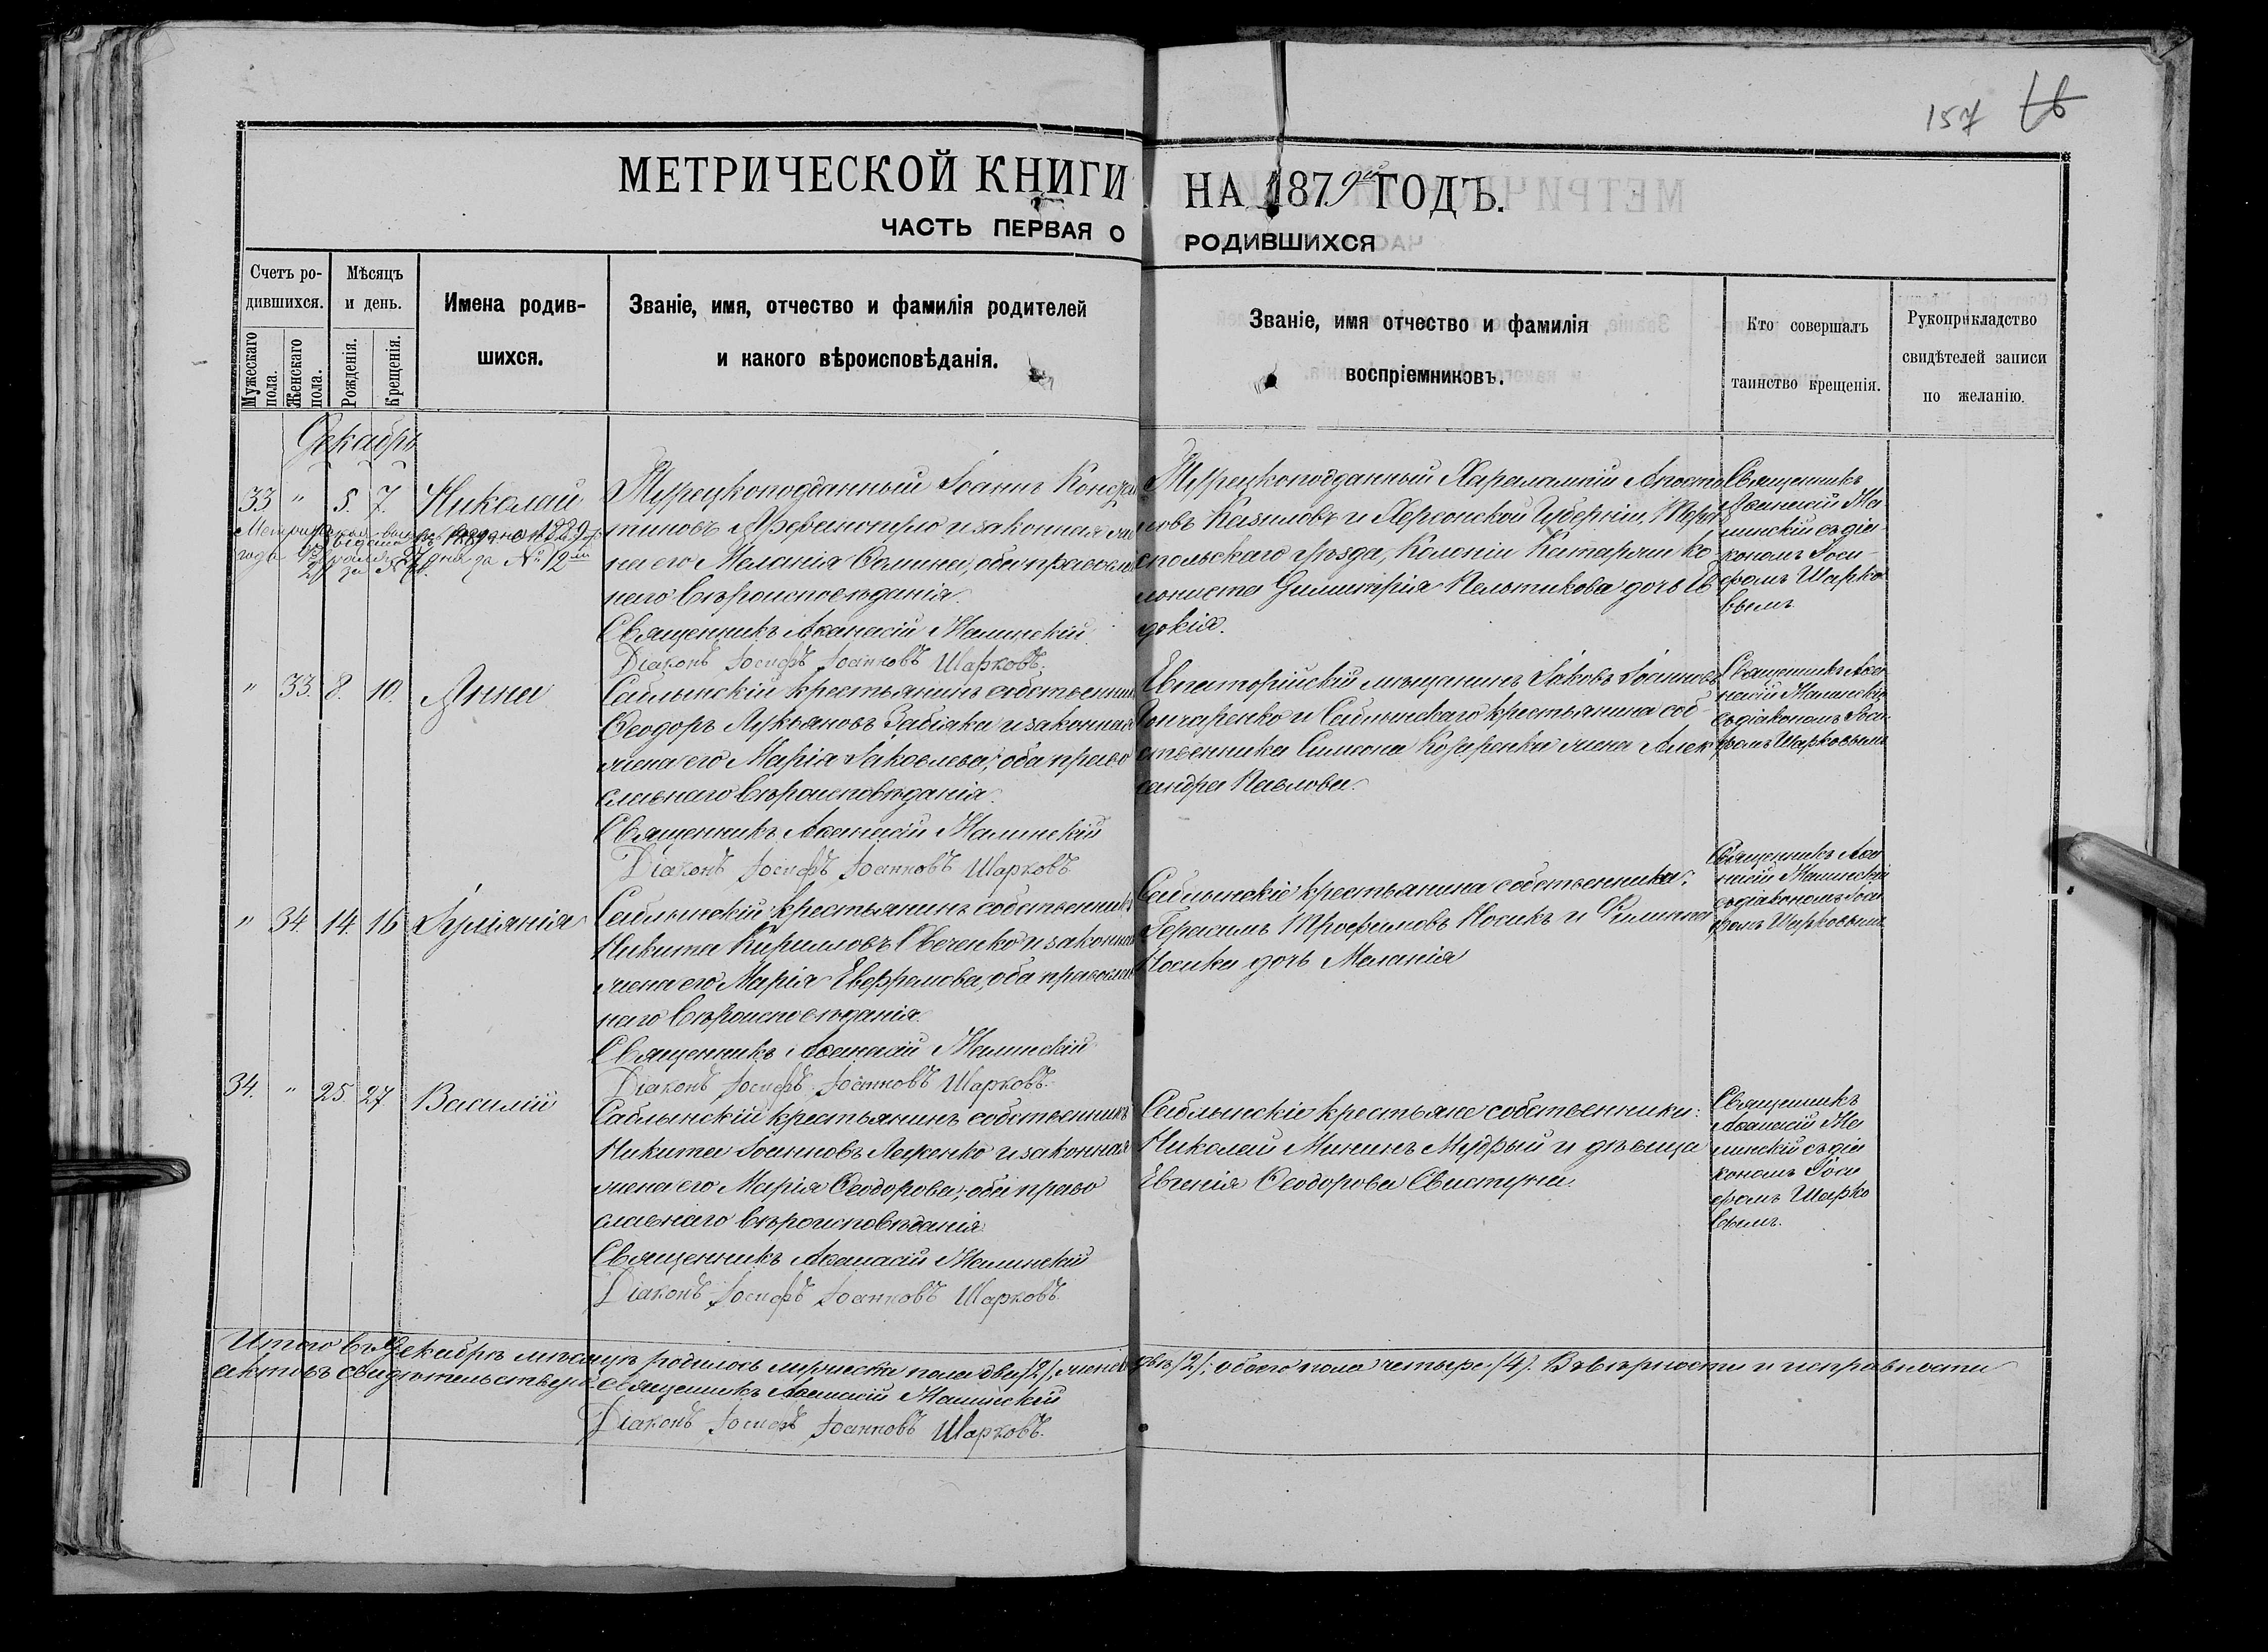 157
МЕТРИЧЕСКОЙ КНИГИ НА 1879й ГОДЪ.
ЧАСТЬ ПЕРВАЯ О РОДИВШИХСЯ
Счетъ ро-
дившихся.
Мужескаго
пола.
Женскаго
пола.
Мѣсяцъ
и день.
Рожденія.
Крещенія.
Имена родив-
шихся.
Званіе, имя, отчество и фамилія родителей
и какого вѣроисповѣданія.
Званіе, имя отчество и фамилія
воспріемниковъ.
Кто совершалъ
таинство крещенія.
Рукоприкладство
свидѣтелей записи
по желанію.
Декабрь
33 " 5. 7. Николай
года за № 12
Турецкоподданный Іоаннъ
и законная же
на его Меланія оба православ
наго вѣроисповѣданія.
Священникъ Аѳанасій Малинскій
Діаконъ Іосифъ Іоанновъ Шарковъ.
Турецкоподданный Харалампій Апосто
ловъ и Херсонской Губерніи, Тира
спольскаго уѣзда, Колоніи Катаржи ко
лониста Димитрія Пельтикова дочь Ев
докія.
Священникъ
Аѳанасій Ма
линскій съ діа
кономъ Іоси
фомъ Шарко
вымъ
" 33. 8. 10. Анна
Саблынскій крестьянинъ собственникъ
Ѳеодоръ Лукьяновъ Забіяка и законная
жена его Марія Іаковлева; оба право
славнаго вѣроисповѣданія.
Священникъ Аѳанасій Малинскій
Діаконъ Іосифъ Іоанновъ Шарковъ
Евпаторійскій мѣщанинъ Іаковъ Іоанновъ
Гончаренко и Саблынскаго крестьянина соб
ственника Симеона жена Алек
сандра Павлова.
Священникъ Аѳа
насій Малинскій
съ діакономъ Іоси
фомъ Шарковымъ
" 34. 14. 16 Іуліанія
Саблынскій крестьянинъ собственникъ
Никита Кирилловъ и законная
жена его Марія Евфремова, оба православ
наго вѣроисповѣданія.
Священникъ Аѳанасій Малинскій
Діаконъ Іосифъ Іоанновъ Шарковъ.
Саблынскіе крестьянина собственника:
Герасимъ Трофимовъ Носикъ и Филиппа
Носика дочь Меланія
Священникъ Аѳа
насій Малинскій
съ діакономъ Іоси
фомъ Шарковымъ
34. " 25. 27 Василій
Саблынскій крестьянинъ собственникъ
Никита Іоанновъ и законная
жена его Марія Ѳеодорова; оба право
славнаго вѣроисповѣданія.
Священникъ Аѳанасій Малинскій
Діаконъ Іосифъ Іоанновъ Шарковъ.
Саблынскіе крестьяне собственники:
Николай Мининъ Мудрый и дѣвица
Евгенія Ѳеодорова Свистуна.
Священникъ
Аѳанасій Ма
линскій съ діа
кономъ Іоси
фомъ Шарко
вымъ.
Итого въ Декабрѣ мѣсяцѣ родилось мужеска пола два /2/, женска двѣ /2/; обоего пола четыре /4/. Въ вѣрности и исправности
актовъ свидѣтельствуемъ Священникъ Аѳанасій Малинскій
Діаконъ Іосифъ Іоанновъ Шарковъ.